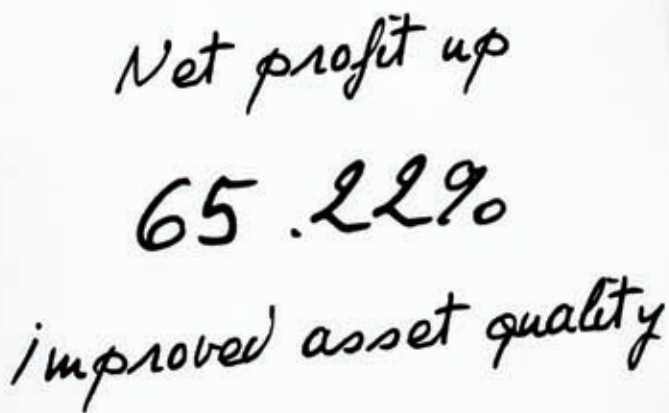 Net profit up
65.22%
improved asset quality